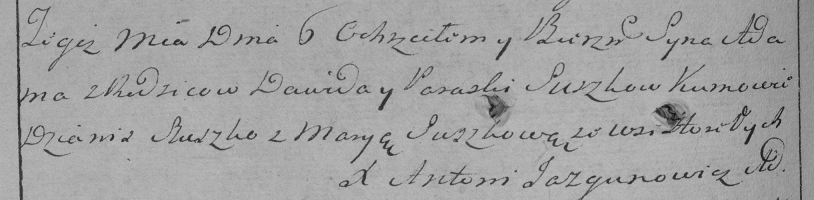 Tegoż Mca Dnia 6 Ochrzciłem y Bierzm Syna Ada
ma z Rodzicow Dawida y Paraski Suszkow Kumowie
Dzianis Suszko z Maryą Suszkową ze wsi
X Antoni Jazgunowicz AD.